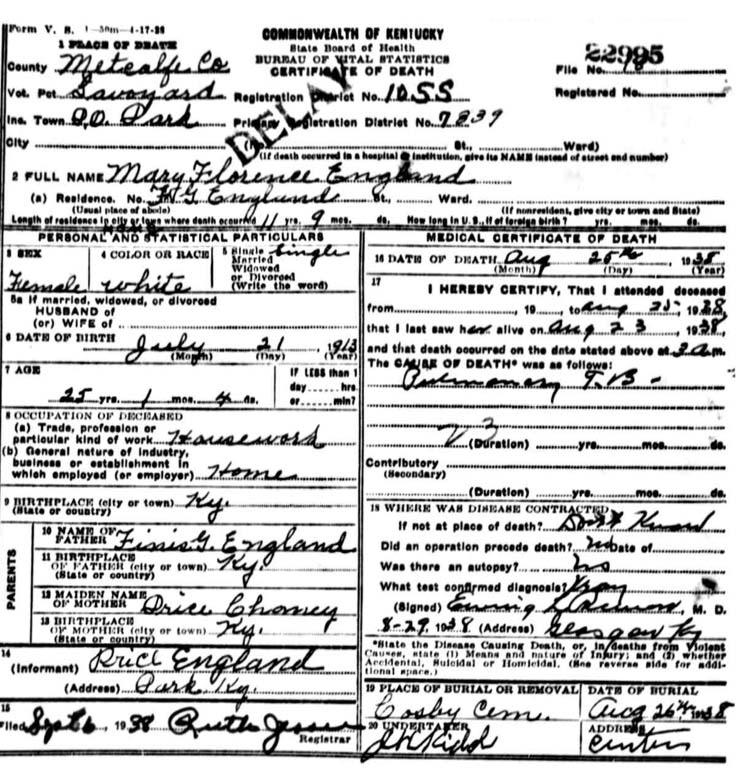 Form V. S. 1-50m-4-17-36
COMMONWEALTH OF KENTUCKY
State Board of Health
BUREAU OF VITAL STATISTICS
CERTIFICATE OF DEATH
DELAY
22995
File No.
Registered No.
1 PLACE OF DEATH
County Metcalfe Co
Vot. Pct Savoyard Registration District No. 1055
Inc. Town Park Primary Registration District No. 7839
City (No. St., Ward)
(If death occurred in a hospital or institution, give its NAME instead of street and number)
2 FULL NAME Mary Florence England
(a) Residence. No. F. G. England St., Ward.
(Usual place of abode) (If nonresident, give city or town and State)
Length of residence in city or town where death occurred 11 yrs. 9 mos. ds. How long in U. S., if of foreign birth? yrs. mos. ds.
PERSONAL AND STATISTICAL PARTICULARS
3 SEX 4 COLOR OR RACE 5 Single Married Widowed or Divorced (Write the word)
Female White Single
5a If married, widowed, or divorced
HUSBAND of
(or) WIFE of
6 DATE OF BIRTH July 21, 1913
(Month) (Day) (Year)
7 AGE IF LESS than 1
day hrs.
25 yrs. 1 mos. 4 ds. or min?
8 OCCUPATION OF DECEASED
(a) Trade, profession or
particular kind of work Housework
(b) General nature of industry,
business or establishment in
which employed (or employer) Home
9 BIRTHPLACE (city or town) Ky.
(State or country)
PARENTS
10 NAME OF
FATHER Finis G. England
11 BIRTHPLACE
OF FATHER (city or town) Ky.
(State or country)
12 MAIDEN NAME
OF MOTHER Price Chaney
13 BIRTHPLACE
OF MOTHER (city or town) Ky.
(State or country)
14
(Informant) Price England
(Address) Park Ky.
15
Filed Sept 6 1938 Ruth
Registrar
MEDICAL CERTIFICATE OF DEATH
16 DATE OF DEATH Aug 25th, 1938
(Month) (Day) (Year)
17
I HEREBY CERTIFY, That I attended deceased
from , 19 , to Aug 25, 1938,
that I last saw her alive on Aug 23, 1938,
and that death occurred on the date stated above at 3 a.m.
The CAUSE OF DEATH* was as follows:
Pulmonary T.B-
(Duration) yrs. mos. ds.
Contributory
(Secondary)
(Duration) yrs. mos. ds.
18 WHERE WAS DISEASE CONTRACTED
If not at place of death? Don't Know
Did an operation precede death? no Date of
Was there an autopsy? no
What test confirmed diagnosis? Xray
(Signed) Ewing, M. D.
8-29, 1938 (Address) Glasgow Ky
*State the Disease Causing Death, or, in deaths from Violent
Causes, state (1) Means and nature of Injury; and (2) whether
Accidental, Suicidal or Homicidal. (See reverse side for addi-
tional space.)
19 PLACE OF BURIAL OR REMOVAL DATE OF BURIAL
Cosby Cem. Aug 26th 1938
20 UNDERTAKER ADDRESS
Kidd Center